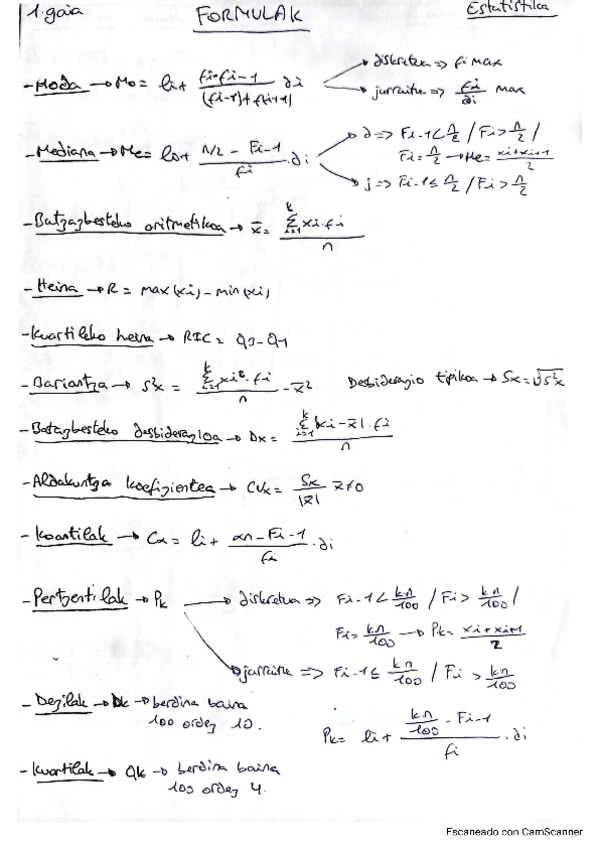 1. gaia FORMULAK Estatistika
- Moda → Mo = li + (fi - fi-1) / ((fi-1) + fi+1) ai → diskretua => fi max
→ jarraitua => fi/ai max
- Mediana → Me = li + (n/2 - Fi-1) / fi · ai → d => Fi-1 < n/2 / Fi > n/2 /
Fi = n/2 → Me = (xi + xi+1) / 2
→ j => Fi-1 ≤ n/2 / Fi > n/2
- Batazbesteko aritmetikoa → x̄ = Σ(i=1..k) xi · fi / n
- Heina → R = max(xi) - min(xi)
- Kuartileko heina → RIC = Q3 - Q1
- Bariantza → s²x = Σ(i=1..k) xi² · fi / n - x̄² Desbiderazio tipikoa → Sx = √s²x
- Batazbesteko desbiderazioa → Dx = Σ(i=1..k) |xi - x̄| · fi / n
- Aldakuntza koefizientea → CVx = Sx / |x̄| x̄ ≠ 0
- Koantilak → Cα = li + (αn - Fi-1) / fi · ai
- Pertzentilak → Pk → diskretua => Fi-1 < kn/100 / Fi > kn/100 /
Fi = kn/100 → Pk = (xi + xi+1) / 2
→ jarraitu => Fi-1 ≤ kn/100 / Fi > kn/100
- Dezilak → Dk → berdina baina
100 ordez 10.
Pk = li + (kn/100 - Fi-1) / fi · ai
- Kuartilak → Qk → berdina baina
100 ordez 4.
Escaneado con CamScanner